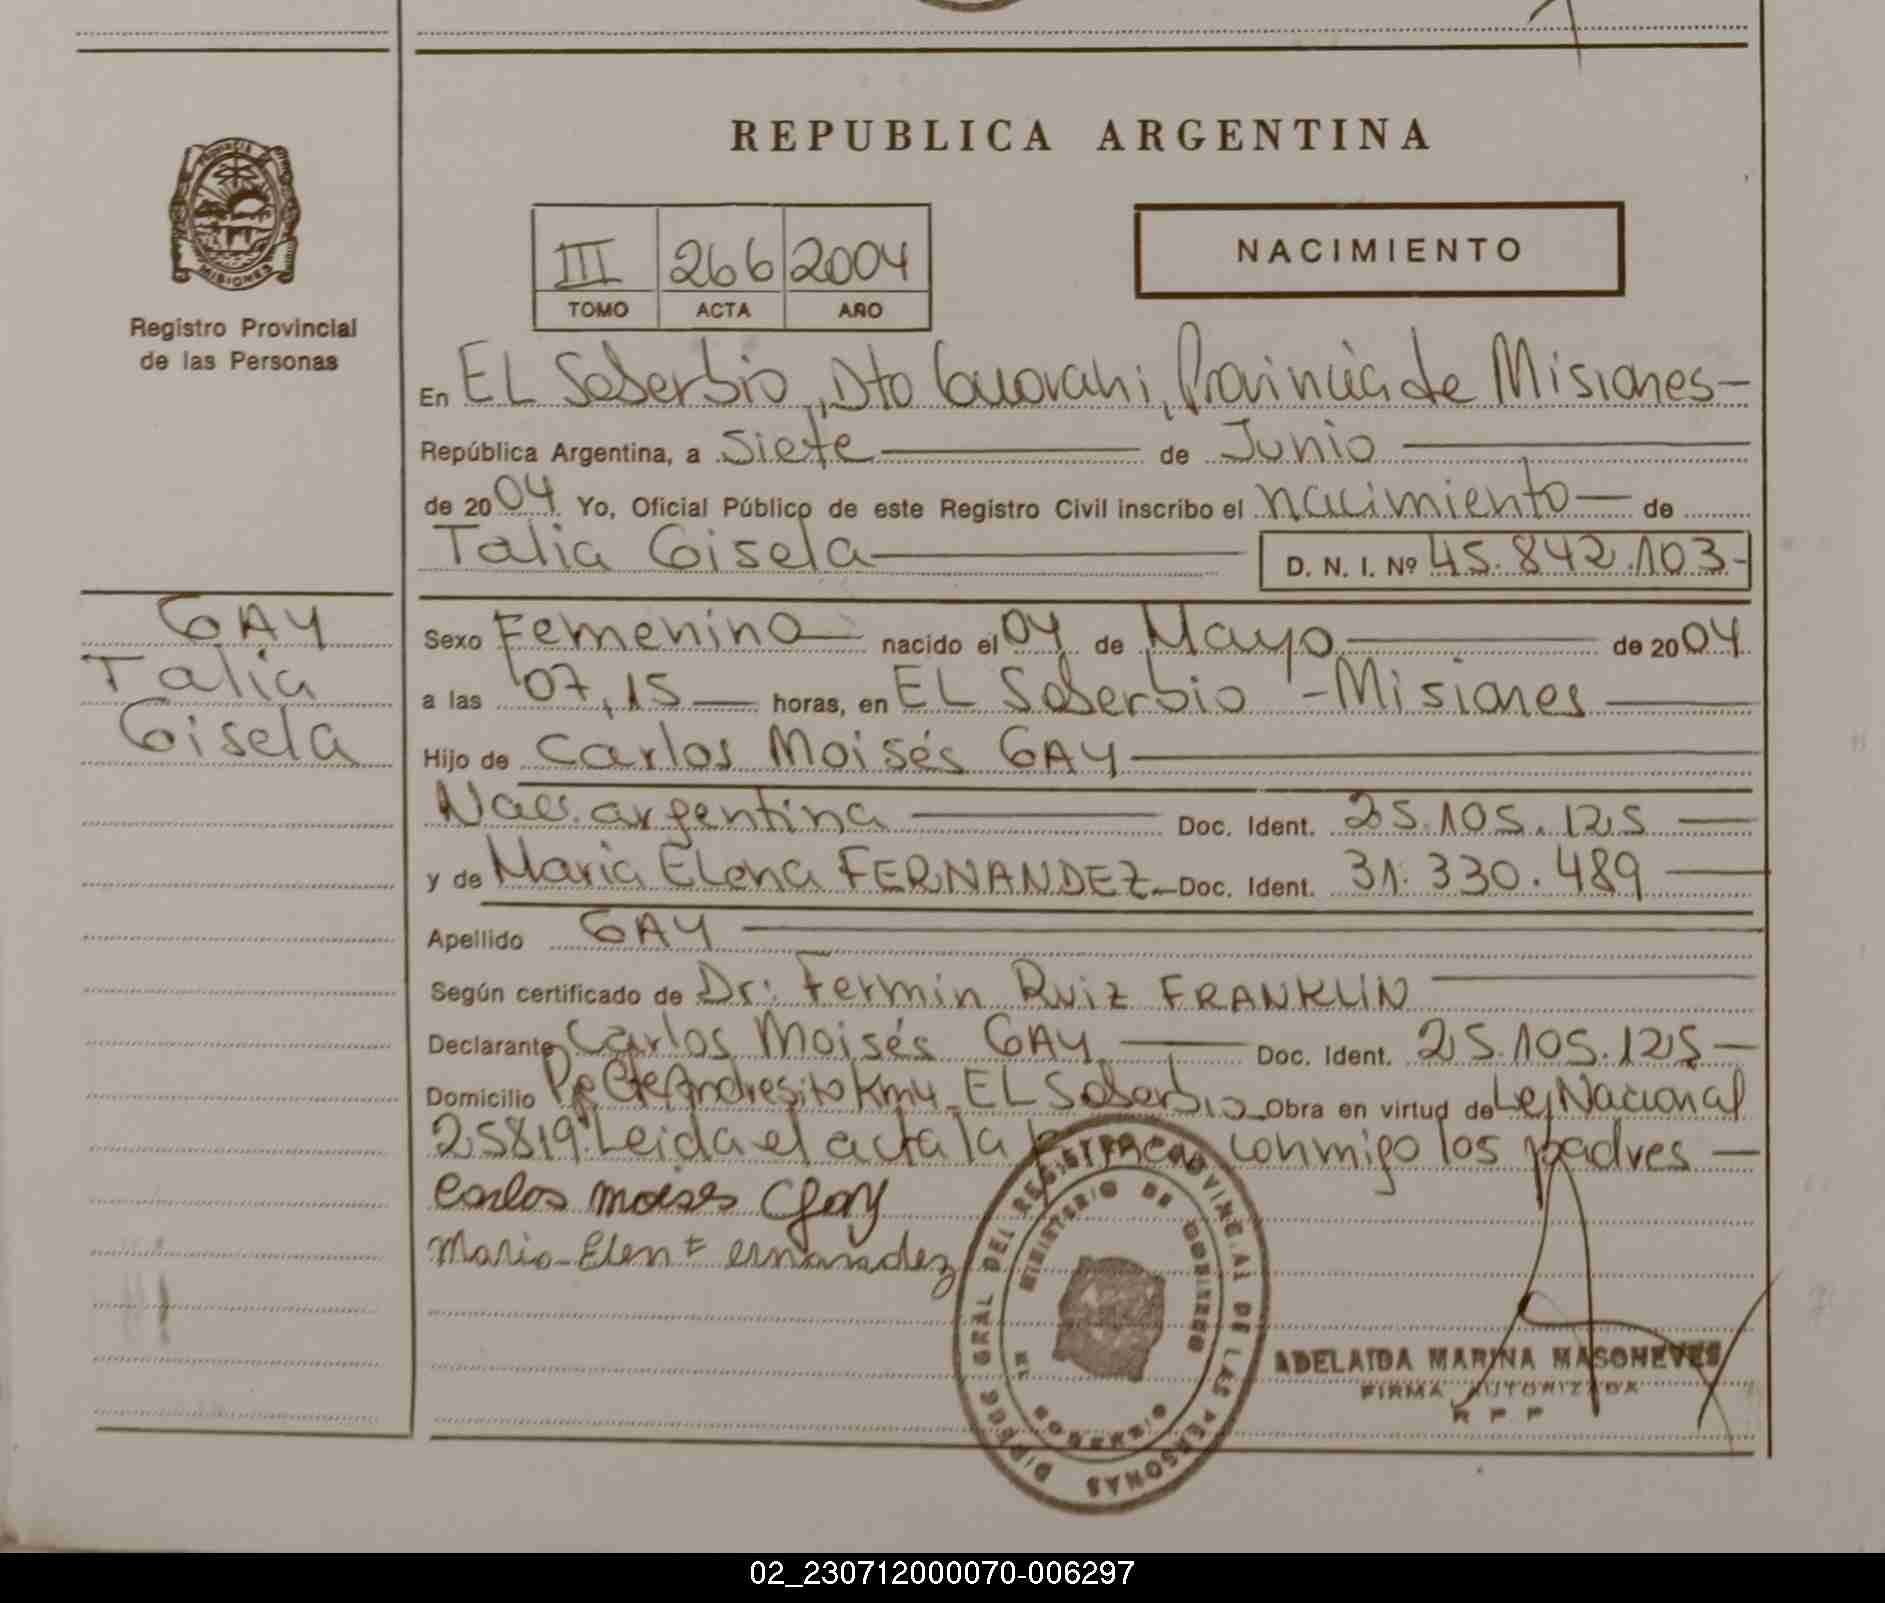 REPUBLICA ARGENTINA
PROVINCIA DE
MISIONES
Registro Provincial
de las Personas
III 266 2004
TOMO ACTA AÑO
NACIMIENTO
En EL Soberbio, Dto Guarani, Provincia de Misiones-
República Argentina, a Siete de Junio
de 2004 Yo, Oficial Público de este Registro Civil inscribo el nacimiento de
Talia Gisela D. N. I. Nº 45.842.103-
GAY
Talia
Gisela
Sexo Femenino nacido el 04 de Mayo de 2004
a las 07,15 horas, en EL Soberbio - Misiones
Hijo de Carlos Moisés GAY
Nac. argentina Doc. Ident. 25.105.125
y de Maria Elena FERNANDEZ Doc. Ident. 31.330.489
Apellido GAY
Según certificado de Dr: Fermin Ruiz FRANKLIN
Declarante Carlos Moisés GAY Doc. Ident. 25.105.125
Domicilio Cte Andresito Km4 EL Soberbio Obra en virtud de Ley Nacional
25819. Leida el acta la conmigo los padres
Carlos moises Gay
Maria Elen Fernandez
DEL REGISTRO PROVINCIAL DE LAS PERSONAS
MINISTERIO DE GOBIERNO
ADELAIDA MARINA MASONEVES
FIRMA AUTORIZADA
R P P
02_230712000070-006297